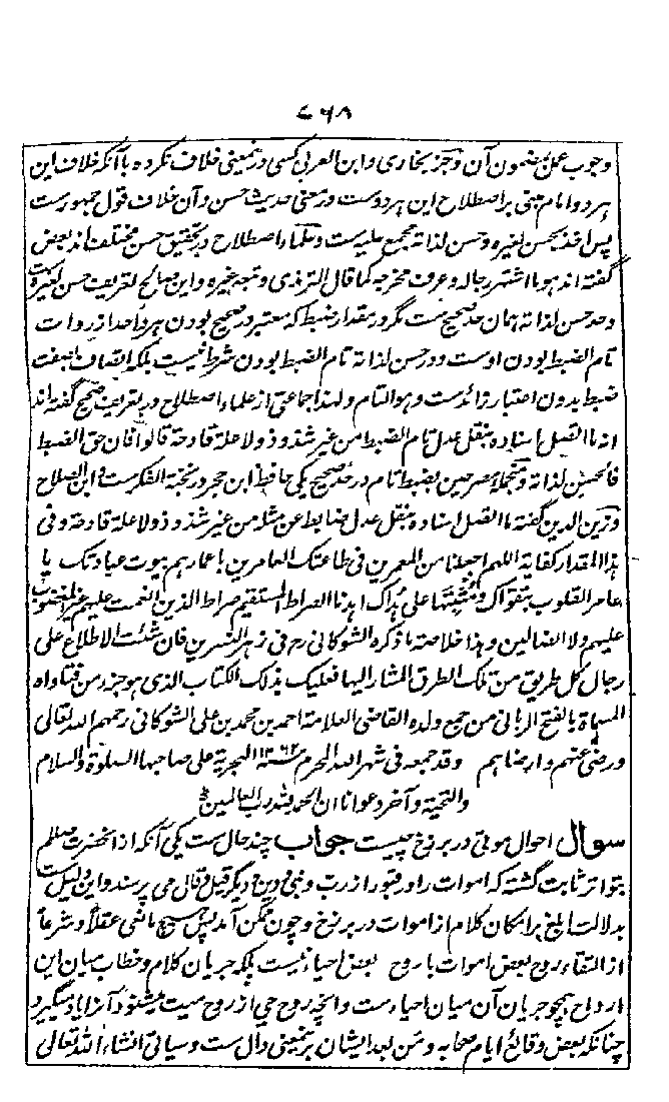 ۷۶۸
وجوب عمل بمضمون آن و جز بخاری و ابن العربی کسی درینمعنی خلاف نکرده با آنکه خلاف این
هر دو امام مبنی بر اصطلاح این هر دوست در معنی حدیث حسن و آن خلاف قول جمهورست
پس اخذ بحسن لغیره و حسن لذاته مجمع علیه است و علماء اصطلاح در تحقیق حسن مختلف اند بعض
گفته اند هو ما اشتهر رجاله و عرف مخرجه کما قال الترمذی و تبعه غیره و این صالح تعریف حسن لغیره است
و حد حسن لذاته همان حد صحیح ست مگر در مقدار ضبط که معتبر در صحیح بودن هر واحد از روات
تام الضبط بودن اوست و در حسن لذاته تام الضبط بودن شرط نیست بلکه اتصاف بصفت
ضبط بدون اعتبار زائدست و هو التام و لهذا جماعتی از علماء اصطلاح در تعریف صحیح گفته اند
انه ما اتصل اسناده بنقل عدل تام الضبط من غیر شذوذ ولا علة قادحة قالوا فان خف الضبط
فالحسن لذاته و منجمله مصرحین بضبط تام در حد صحیح یکی حافظ ابن حجر در نخبة الفکرست و ابن الصلاح
و زین الدین گفته ما اتصل اسناده بنقل عدل ضابط عن مثله من غیر شذوذ ولا علة قادحة و فی
هذا المقدار کفایة اللهم اجعلنا من المعمرین فی طاعتک العامرین باعمارهم بیوت عبادتک یا
عامر القلوب بتقواک و مثبتها علی هداک اهدنا الصراط المستقیم صراط الذین انعمت علیهم غیر المغضوب
علیهم ولا الضالین و هذا خلاصة ما ذکره الشوکانی رح فی زهر النسرین فان شئت الاطلاع علی
رجال کل طریق من تلک الطرق المشار الیها فعلیک بذلک الکتاب الذی هو جزء من فتاواه
المسماة بالفتح الربانی من جمع ولده القاضی العلامة احمد بن محمد بن علی الشوکانی رحمهم الله تعالی
و رضی عنهم و ارضاهم وقد جمعه فی شهر الله المحرم سنه الهجریة علی صاحبها الصلوة والسلام
والتحیة و آخر دعوانا ان الحمد لله رب العالمین
سوال احوال موتی در برزخ چیست جواب چند حال ست یکی آنکه از آنحضرت صلعم
بتواتر ثابت گشته که اموات را در قبور از رب و نبی و دین و دیگر قیل و قال می پرسند و این دلیل ست
بدلالت ابلغ بر امکان کلام از اموات در برزخ و چون ممکن آمد پس هیچ مانعی عقلاً و شرعاً
از التقاء روح بعض اموات با روح بعض احیاء نیست بلکه جریان کلام و خطاب میان این
ارواح همچو جریان آن میان احیاء ست و آنچه روح حی از روح میت میشنود آنرا یاد میگیرد
چنانکه بعض وقائع ایام صحابه و من بعد ایشان برینمعنی دال ست و سیاتی انشاء الله تعالی